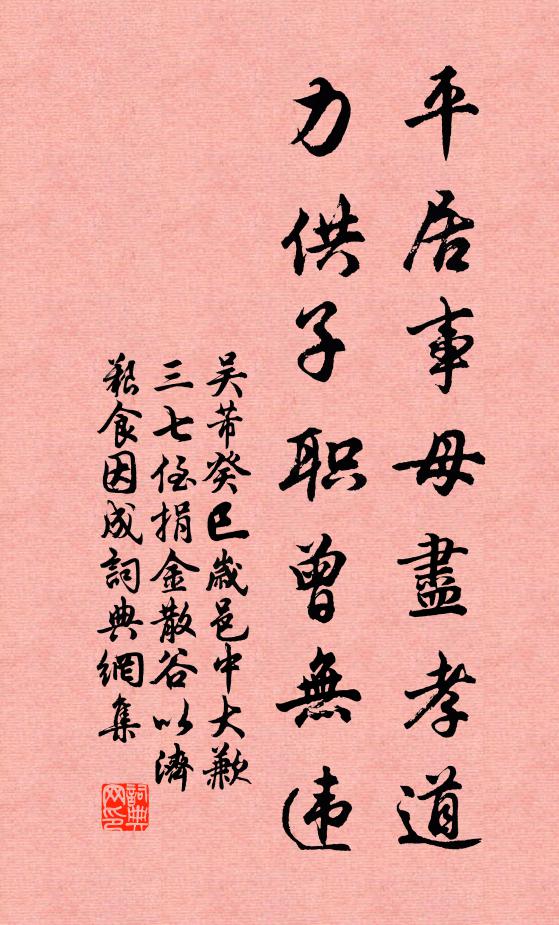 平居事母盡孝道
力供子职曾無违
吴芾癸巳歲邑中大歉
三七侄捐金散谷以濟
艱食因成詞典網集
詞典网印